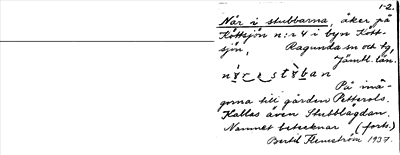 1-2.
När i stubbarna, åker på
Köttsjön n:r 4 i byn Kött-
sjön, Ragunda sn och tg,
Jämtl. län.
På inä-
gorna till gården Petterols.
Kallas även Stubblägdan.
Namnet betecknar (forts.)
Bertil Flemström 1937.